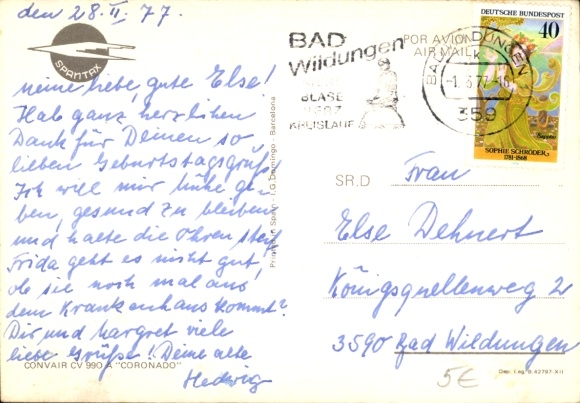 den 28.II.77
SPANTAX
meine liebe, gute Else!
Hab ganz herzlichen
Dank für Deinen so
lieben Geburtstagsgruß
Ich will mir Mühe ge-
ben, gesund zu bleiben
und halte die Ohren steif
Frida geht es nicht gut,
ob sie noch mal aus
dem Krankenhaus kommt?
Dir und Margret viele
liebe Grüße! Deine alte
Hedwig
CONVAIR CV 990 A "CORONADO"
Printed in Spain - I.G. Domingo - Barcelona
BAD
Wildungen
BLASE
HERZ
KREISLAUF
POR AVION
AIR MAIL
BAD WILDUNGEN
-1.3.77-16
359
DEUTSCHE BUNDESPOST
40
Sappho
SOPHIE SCHRÖDER
1781-1868
SR.D
Frau
Else Dehnert
Königsquellenweg 2
3590 Bad Wildungen
5€
Dep. Leg. B 42797-XII